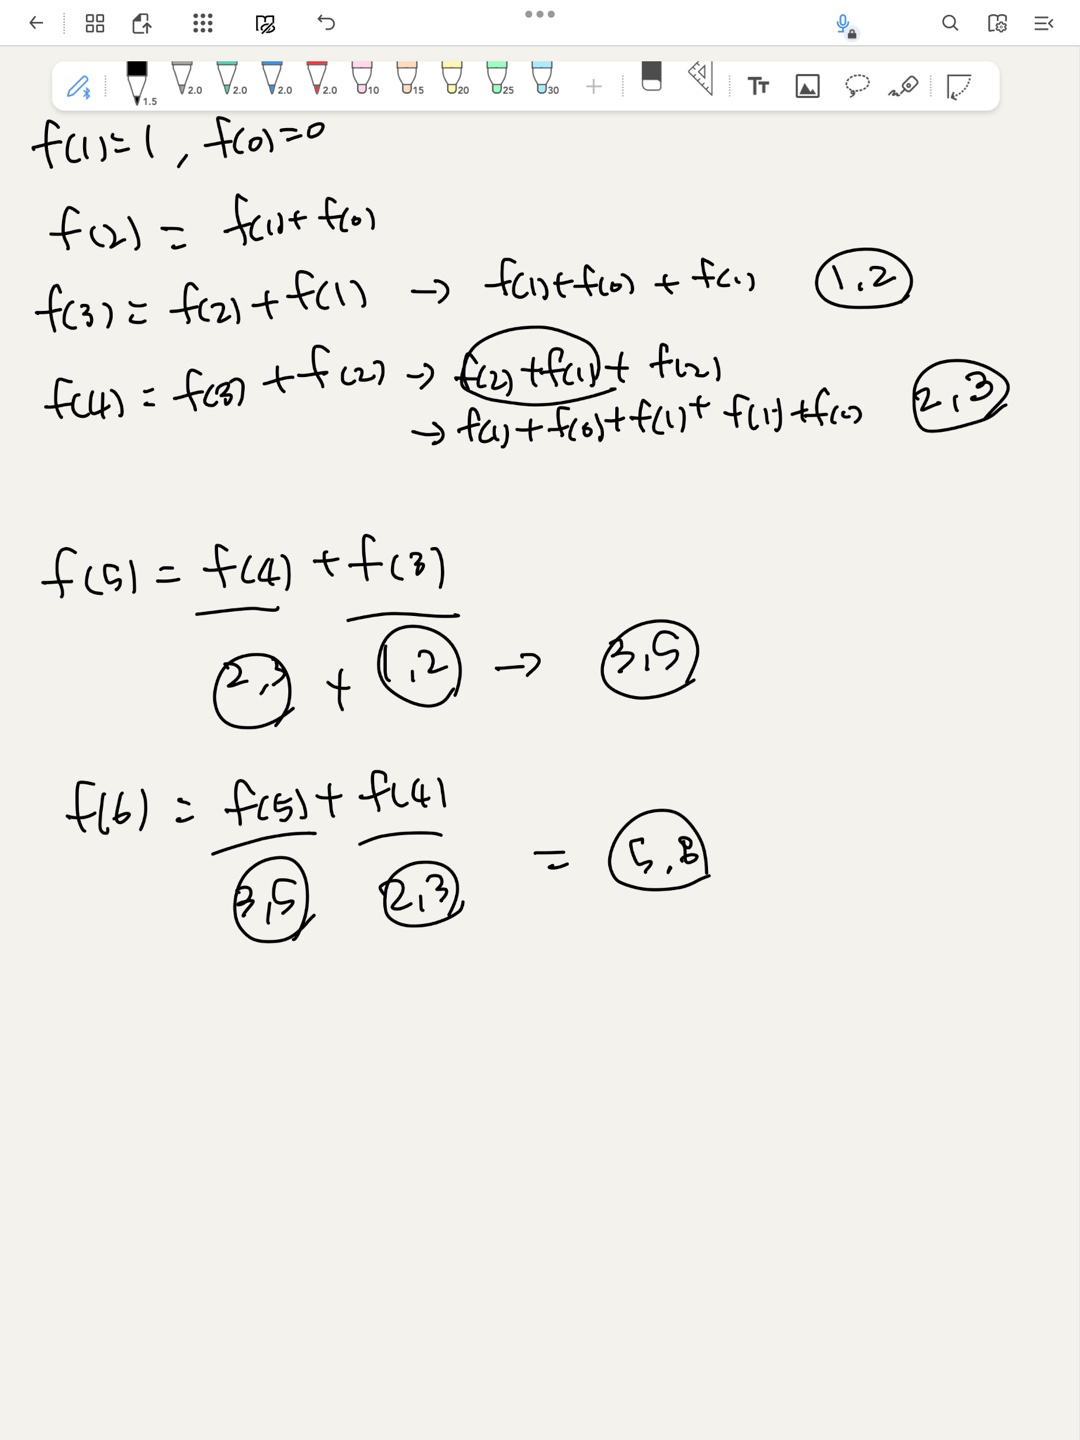 1.5 2.0 2.0 2.0 2.0 10 15 20 25 30 + TT
f(1)=1, f(0)=0
f(2) = f(1)+f(0)
f(3) = f(2)+f(1) → f(1)+f(0)+f(1) 1,2
f(4) = f(3)+f(2) → f(2)+f(1)+f(2)
→ f(1)+f(0)+f(1)+f(1)+f(0) 2,3
f(5) = f(4)+f(3)
2,3 + 1,2 → 3,5
f(6) = f(5)+f(4)
3,5 2,3 = 5,8